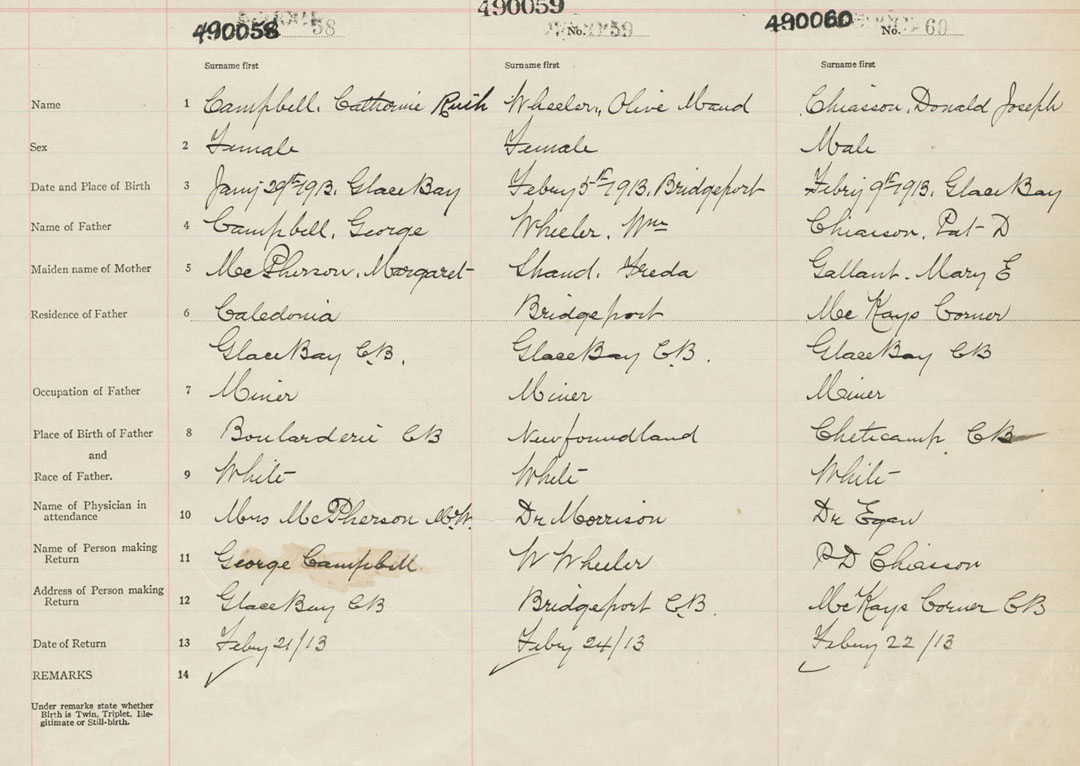 490058 58 490059 No. 59 490060 No. 60
Surname first Surname first Surname first
Name 1 Campbell. Catherine Ruth Wheeler, Olive Maud Chiasson, Donald Joseph
Sex 2 Female Female Male
Date and Place of Birth 3 Jany 29th 1913. Glace Bay Febry 5th 1913. Bridgeport Febry 9th 1913. Glace Bay
Name of Father 4 Campbell. George Wheeler. Wm Chiasson. Pat D
Maiden name of Mother 5 McPherson. Margaret Shand. Freda Gallant. Mary E
Residence of Father 6 Caledonia Bridgeport McKays Corner
Glace Bay C.B. Glace Bay C.B. Glace Bay CB
Occupation of Father 7 Miner Miner Miner
Place of Birth of Father 8 Boularderie CB Newfoundland Cheticamp CB
and
Race of Father. 9 White White White
Name of Physician in
attendance 10 Mrs McPherson M.W. Dr Morrison Dr Egan
Name of Person making
Return 11 George Campbell W Wheeler P D Chiasson
Address of Person making
Return 12 Glace Bay CB Bridgeport C.B. McKays Corner CB
Date of Return 13 Feby 21/13 Febry 24/13 Febuy 22/13
REMARKS 14
Under remarks state whether
Birth is Twin, Triplet, Ille-
gitimate or Still-birth.